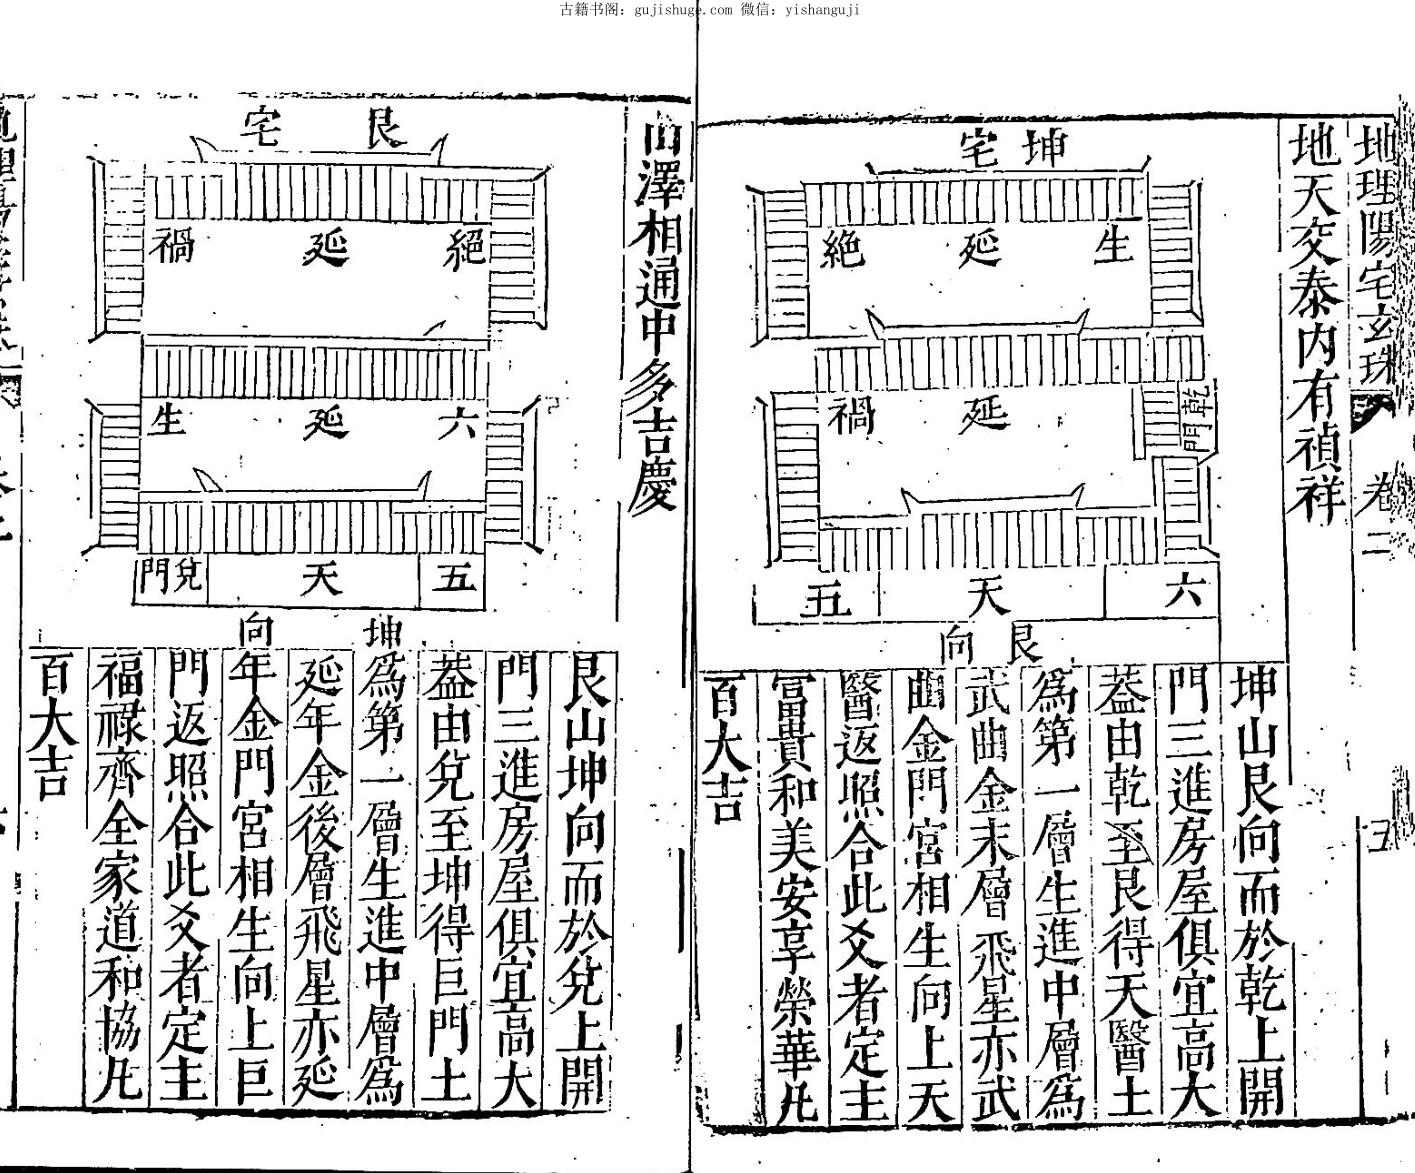 古籍书阁：gujishuge.com 微信：yishanguji
地理陽宅玄珠
卷二
五
地天交泰内有禎祥
坤宅
生 延 絶
延 禍
乾門
六 天 五
艮向
坤山艮向而於乾上開
門三進房屋俱宜高大
葢由乾至艮得天醫土
爲第一層生進中層爲
武曲金末層飛星亦武
曲金門宮相生向上天
醫返照合此爻者定主
富貴和美安享榮華凡
百大吉
山澤相通中多吉慶
艮宅
絕 延 禍
六 延 生
五 天 兌門
坤向
艮山坤向而於兌上開
門三進房屋俱宜高大
葢由兌至坤得巨門土
爲第一層生進中層爲
延年金後層飛星亦延
年金門宮相生向上巨
門返照合此爻者定主
福祿齊全家道和協凡
百大吉